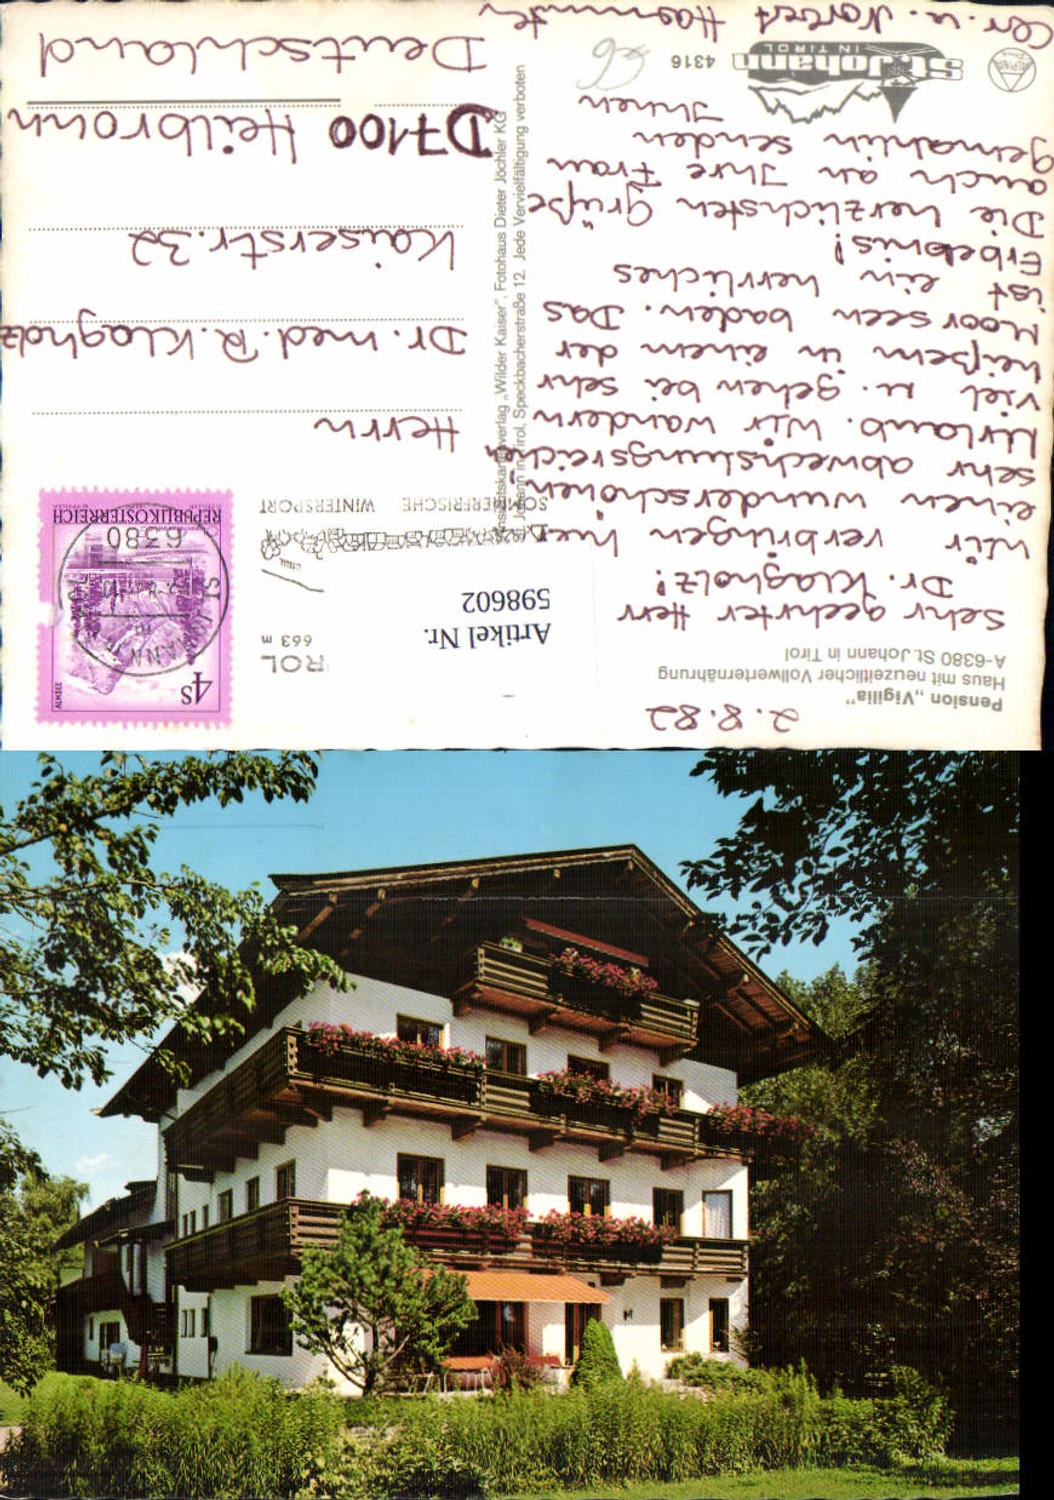 2.8.82
Pension „Vigilia"
Haus mit neuzeitlicher Vollwerternährung
A-6380 St. Johann in Tirol
Sehr geehrter Herr
Dr. Klagholz!
Wir verbringen hier
einen wunderschönen,
sehr abwechslungsreichen
Urlaub. Wir wandern
viel u. gehen bei sehr
heißem in einem der
Moorseen baden. Das
ist ein herrliches
Erlebnis!
Die herzlichsten Grüße
auch an Ihre Frau
Gemahlin senden
Ihnen
u. Norbert
St. Johann
IN TIROL
4316
ROL
663 m
Artikel Nr.
598602
SOMMERFRISCHE WINTERSPORT
4S
ALMSEE
REPUBLIK ÖSTERREICH
6380
ST. JOHANN
Herrn
Dr. med. R. Klagholz
Kaiserstr. 32
D7100 Heilbronn
Deutschland
Ansichtskartenverlag „Wilder Kaiser", Fotohaus Dieter Jöchler KG
St. Johann in Tirol, Speckbacherstraße 12. Jede Vervielfältigung verboten